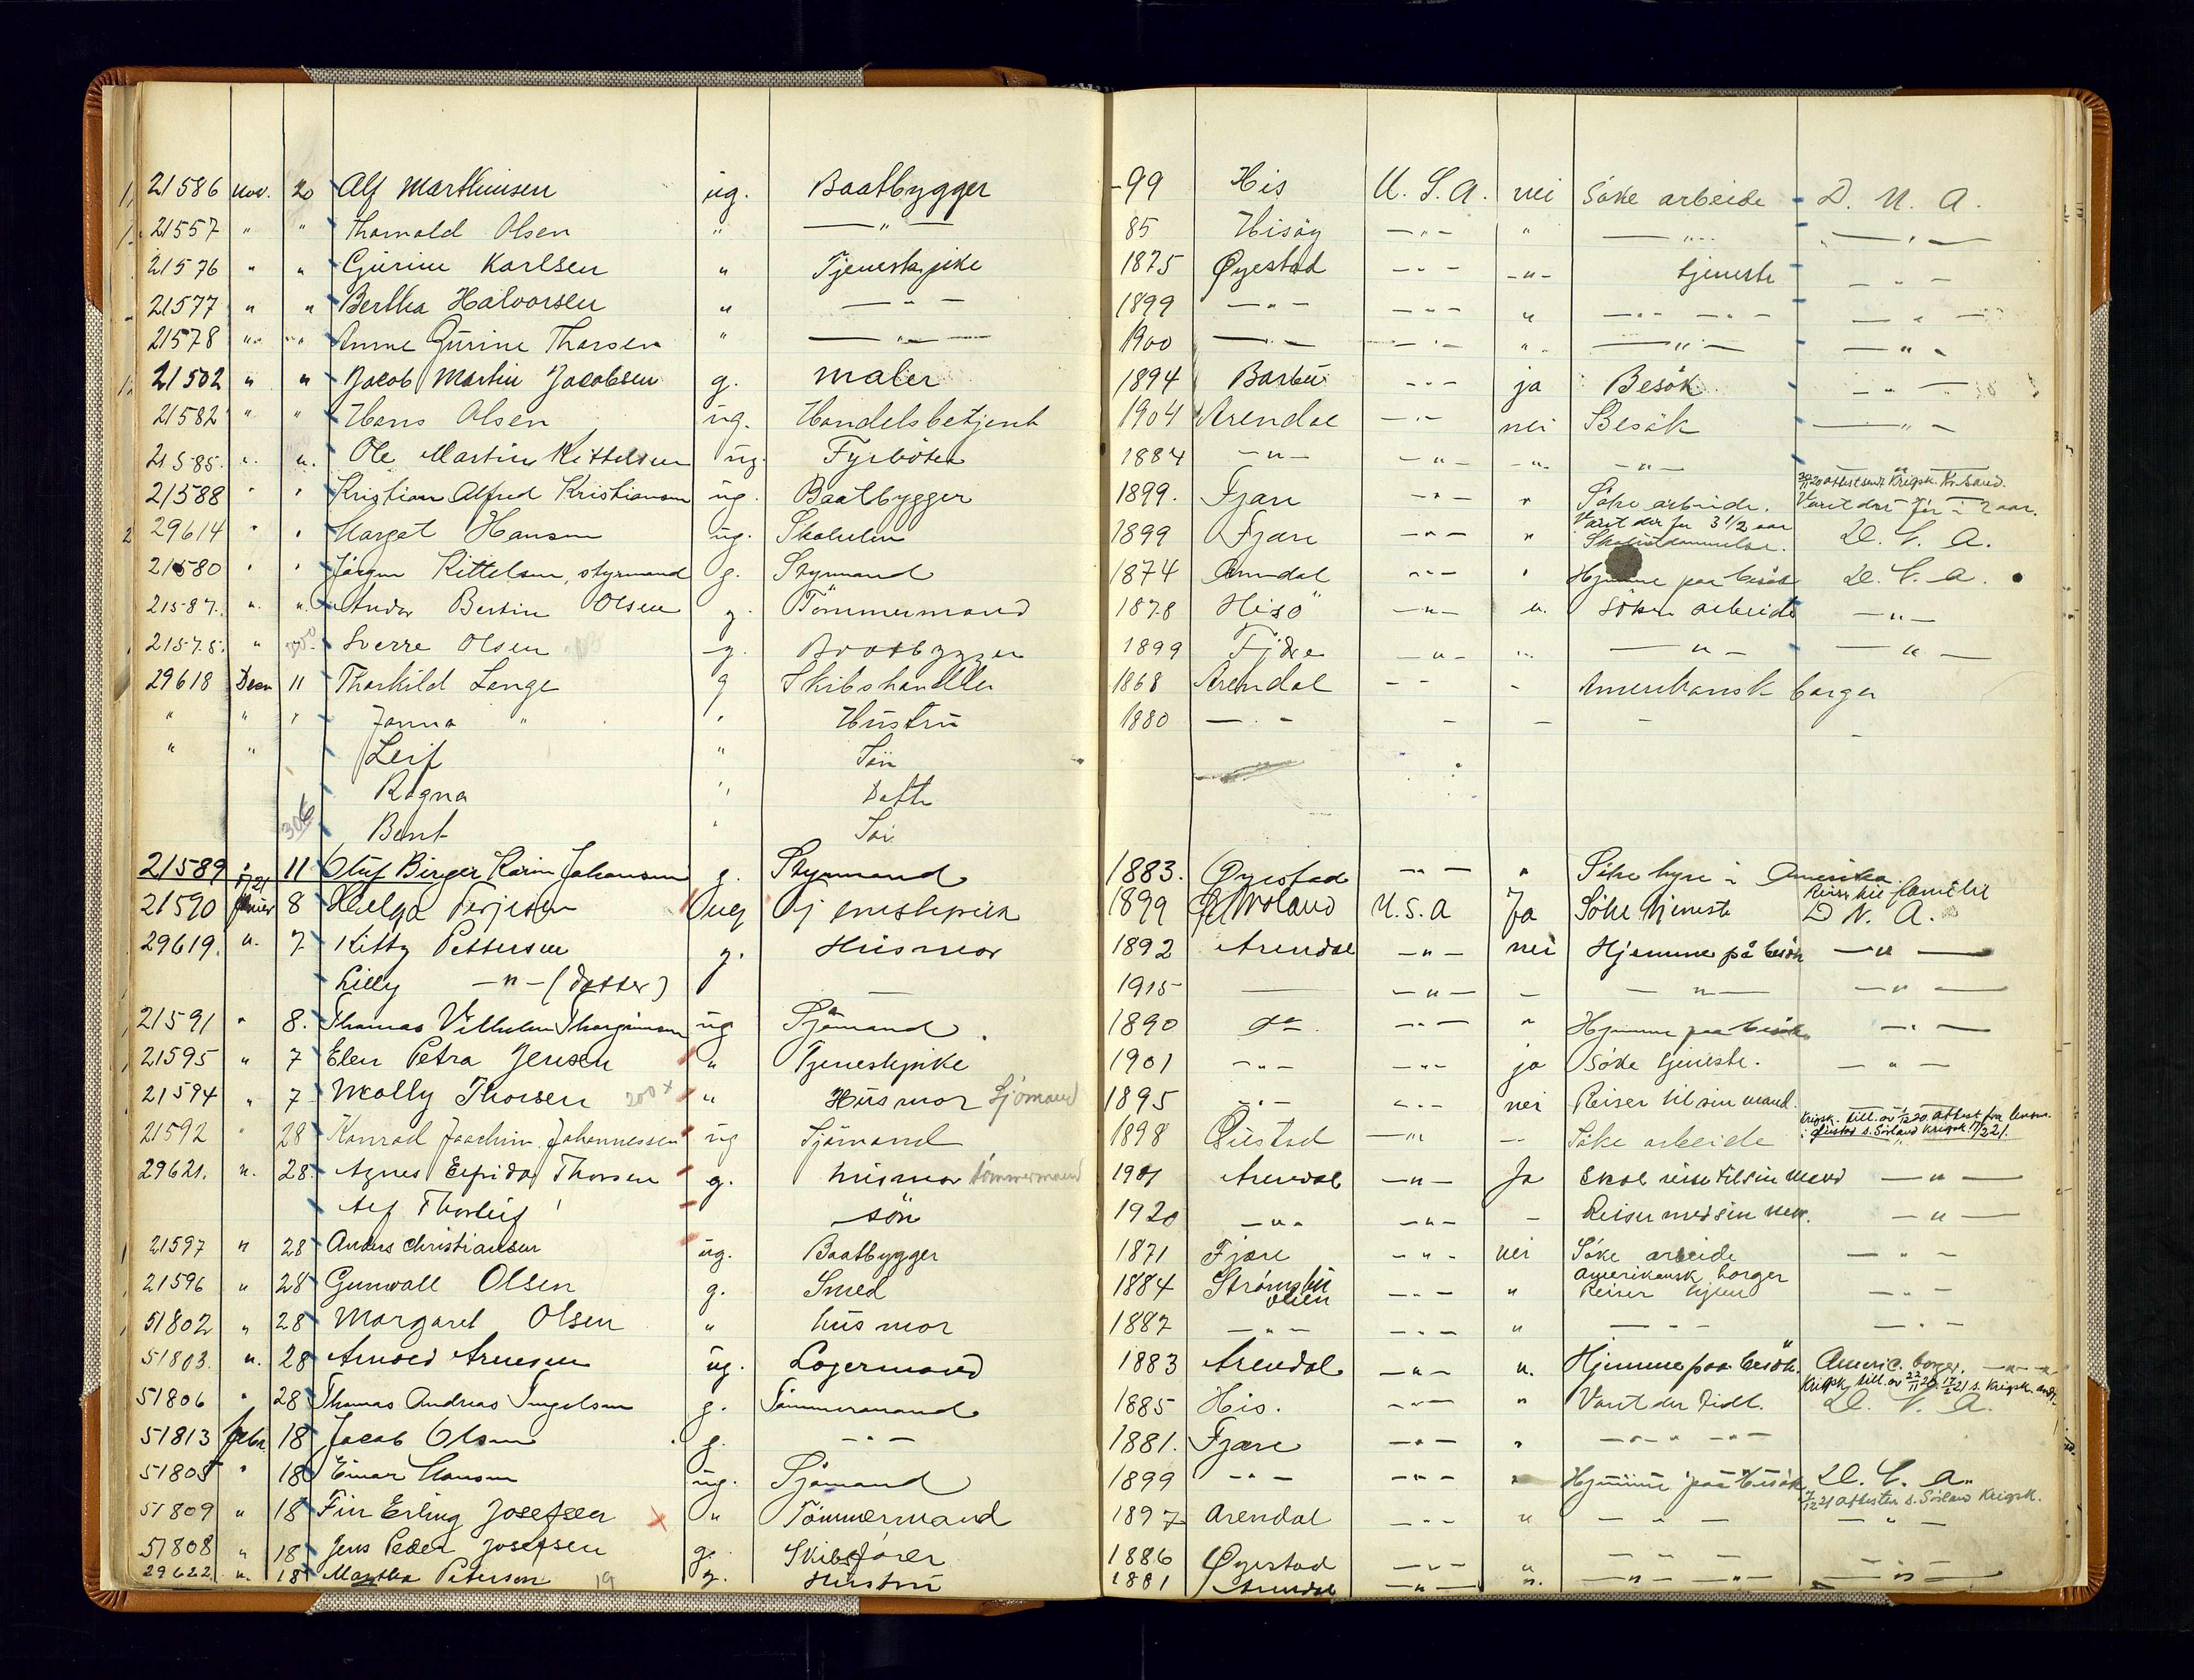 1. 21586 nov. 20 Alf Marthinsen ug. Baatbygger -99 His U.S.A. nei Söke arbeide D.N.A.
1. 21557 " " Thorvald Olsen " —"— 85 Hisöy —"— " —"— —"—
21576 " " Gurine Karlsen " Tjenestepike 1875 Øyestad —"— —"— tjeneste —"—
21577 " " Bertha Halvorsen " —"— 1899 —"— —"— " —"— —"— —"—
21578 " " Anne Gurine Thorsen " —"— 1900 —"— —"— " —"— —"—
1. 21502 " " Jacob Martin Jacobsen g. maler 1894 Barbu —"— ja Besök —"—
21582 " " Hans Olsen ug. Handelsbetjent 1904 Arendal —"— nei Besök —"—
21585. " " Ole Martin Kittelsen ug. Fyrböter 1884 —"— —"— —"— —"— —"—
21588 " " Kristian Alfred Kristiansen ug. Baatbygger 1899. Fjære —"— " Söke arbeide. Varit der för i 2 aar.
2 29614 " " Margot Hansen ug. 1899 Fjære —"— " Varit der för 3 1/2 aar D. N. A.
21580 " " Jörgen Kittelsen, styrmand g. Styrmand 1874 Arendal —"— " Hjemme paa besök D. N. A.
21587. " " Bertin Olsen g. Tömmermand 1878 Hisö —"— " Söke arbeide —"—
21578. " Sverre Olsen g. Baatbygger 1899 Fjære —"— " —"— —"—
29618 Decm 11 Thorkild Lange g Skibshandler 1868 Arendal — — Amerikansk borger
" " " Janna " " Hustru 1880 —"— — — —
" " Leif " Sön
Ragna " Dattr
306 Bent " Sön
21589 11 Oluf Birger Karin Johansen g. Styrmand 1883. Øyestad —"— " Söke hyre i Amerika
21590 Januar 8 Helga Terjesen ug Tjenestepike 1899 Froland U.S.A Ja Söke tjeneste D N. A.
29619. " 7 Kitty Pettersen g. Husmor 1892 Arendal —"— nei Hjemme på besök —"—
Lilly —"— (datter) — 1915 — —"— — —"— —"—
21591 " 8. Thomas Vilhelm Thorgrimsen ug Sjömand 1890 do —"— " Hjemme paa besök —"—
21595 " 7 Elen Petra Jensen " Tjenestepike 1901 —"— —"— ja Söke tjeneste. —"—
21594 " 7 Molly Thorsen 200 x " Husmor Sjömand 1895 —"— —"— nei Reiser til sin mand.
21592 " 28 Konrad Joachim Johannessen ug Sjömand 1898 —"— — Söke arbeide
29621. " 28 Agnes Elfrida Thorsen g. husmor tömmermand 1901 Arendal —"— Ja Skal reise til sin mand —"—
Alf Thorleif sön 1920 —"— —"— — Reiser med sin mor. —"—
21597 " 28 Anders Christiansen ug. Baatbygger 1871 Fjære —"— nei Söke arbeide —"—
21596 " 28 Gunvall Olsen g. Smed 1884 Strömsbu —"— " Amerikansk borger Reiser hjem —"—
51802 " 28 Margaret Olsen " hus mor 1887 —"— —"— " —"— —"—
51803. " 28 Arnold Arnesen ug. Lagermand 1883 Arendal —"— " Hjemme paa besök. Americ. borger. —"—
51806 " 28 Thomas Andreas Ingelsen g. Tömmermand 1885 His. —"— " Varit der tidl. D. N. A.
51813 febr. 18 Jacob Olsen g. —"— 1881. Fjære —"— " —"— —"—
51805 " 18 Einar Hansen ug. Sjömand 1899 —"— —"— " Hjemme paa besök D. N. A.
51809 " 18 Fin Erling Josefsen x " Tömmermand 1897 Arendal —"— " —"— —"—
51808 " 18 Jens Peder Josefsen g. Skibsförer 1886 Øyestad —"— " —"— —"—
29622 " 18 Martha Peterson 19 g. Hustru 1881 Arendal —"— " —"— —"— —"—